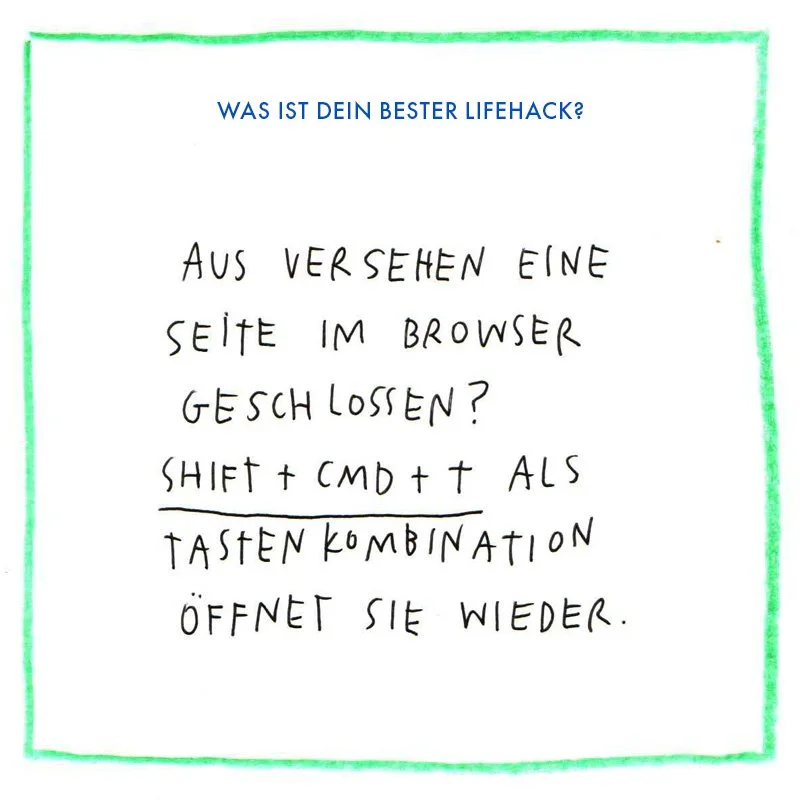 WAS IST DEIN BESTER LIFEHACK?
AUS VERSEHEN EINE
SEITE IM BROWSER
GESCHLOSSEN?
SHIFT + CMD + T ALS
TASTENKOMBINATION
ÖFFNET SIE WIEDER.